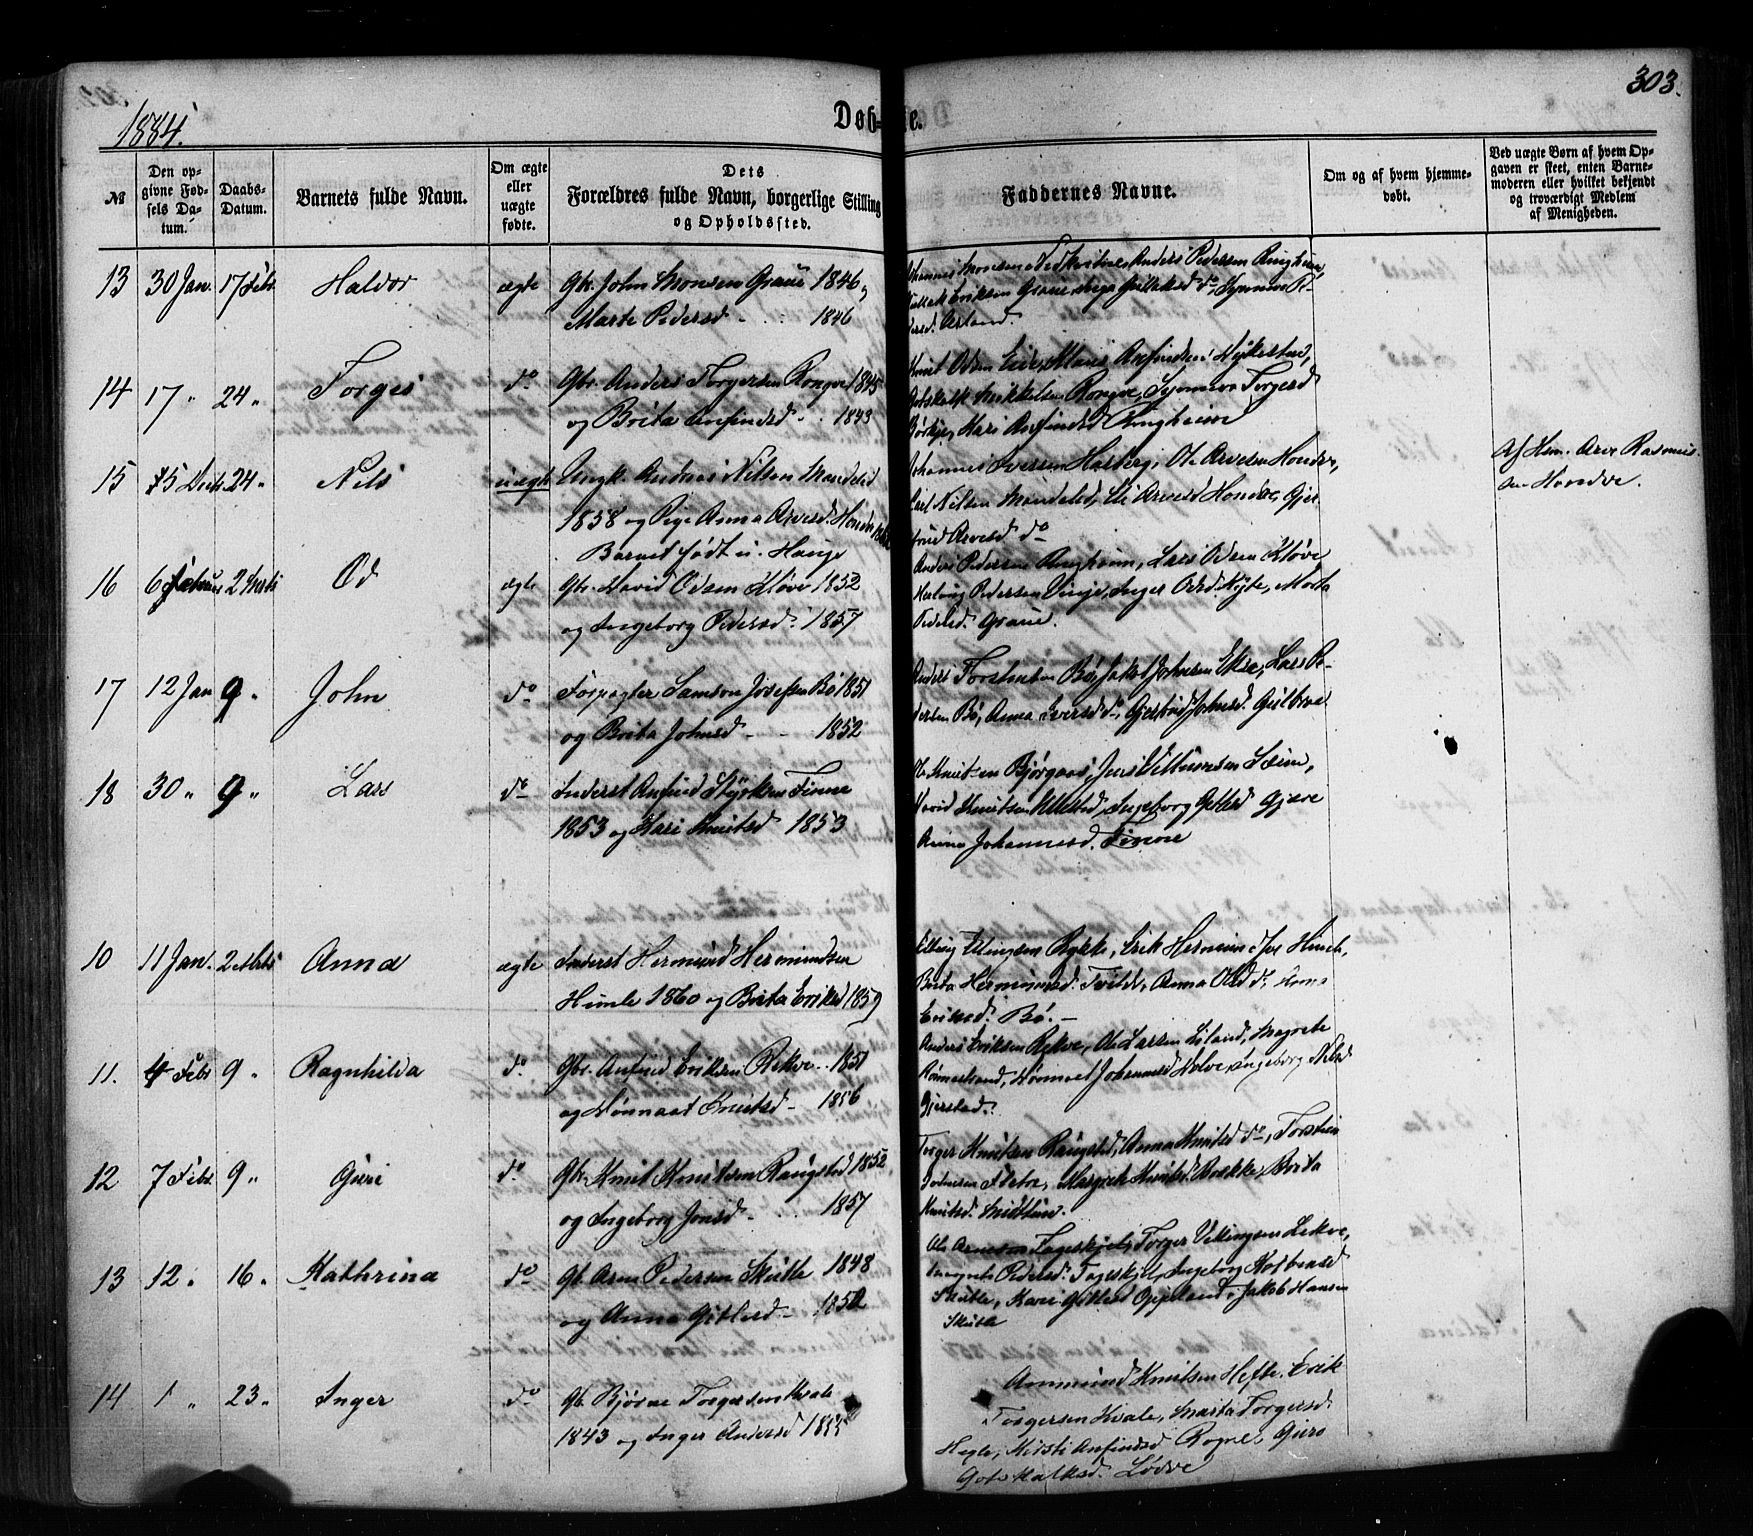 303.
1884.
Døb-te.
№
Den opgivne Fødsels Datum.
Daabs-Datum.
Barnets fulde Navn.
Om ægte eller uægte fødte.
Dets Forældres fulde Navn, borgerlige Stilling og Opholdssted.
Faddernes Navne.
Om og af hvem hjemmedøbt.
Ved uægte Børn af hvem Opgaven er skeet, enten Barnemoderen eller hvilket bekjendt og troværdigt Medlem af Menigheden.
13 30 Jan. 17 Febr. Haldor ægte Gbr. John Monsen Graue 1846 og
Marte Pedersd - 1846
Johannes Monsen Nedkvitne, Anders Pedersen Ringheim,
Eriksen Graue, Inga do, Synneva Pe-
dersd.Ørland.
14 17 " 24 " Torgei do Gbr. Anders Torgersen Rongve 1845
og Brita Anfindsd - 1843
Knut Odsen Eide, Anfindsen Nykestad,
Gotskalk Mikkelsen Rongve, Synneva Torgersd
Kari Anfindsd Ringheim
15 15 Decbr 24 " Nils uægte Ungk. Andreas Nilsen Mandelid
1858 og Pige Anna Arvesd. Hondve
Barnet født i Hauge
Johannes Iversen Ole Arvesen Hondve,
Nilsen Mandelid, Arvesd Hondve, Gjer-
trud Arvesd do
Af Hsm. Arve Rasmus-
sen Hondve.
16 6 Februar 2 Marts Od ægte Gbr. David Odsen Kløve 1852
og Ingeborg Pedersd. 1857
Anders Pedersen Ringheim, Lars Odsen Kløve
Pedersen Vinje, Inger Odsd. Nyre, Marta
Graue.
17 12 Jan 9 " John do Forpagter Samson Josefsen Bø 1851
og Brita Johnsd - - 1852
Anders Torstensen Bø, Jakob Johnsen Ekse, Lars Pe-
dersen Bø, Anna Iversd do, Gjertrud Johnsd.
18 30 " 9 " Lars do Inderst Anfind Styrksen Finne
1853 og Kari Knutsd 1853
Ole Knutsen Bjørgaas, Jens Seim,
David Knutsen Ullestad, Ingeborg Gitlesd Gjære
Anna Johannesd. Finne
10 11 Jan. 2 Marts Anna ægte Inderst Hermund Hermundsen
Himle 1860 og Brita Eriksd 1859
Elling Ellingsen Rykke, Erik Hermundsen Himle,
Brita Hermundsd. Tvilde, Anna Olsd do
Eriksd. Bø. -
11. 4 Febr 9 " Ragnhilda do Gbr. Anfind Eriksen Rekve 1851
og Wønnaat Knutsd - 1856
Anders Eriksen Rykve, Ole Larsen Liland, Magrete
Rønnestrand, Johannesd Holve, Ingeborg Nilsd
Gjerstad.
12 7 Febr 9 " Guri do Gbr. Knut Knutsen Raugstad 1852
og Ingeborg Jonsd - 1857
Torger Knutsen Raugstad, Anna Knutsd do, Torstein
Johnsen Fletre, Margrete Knutsd. Brekke, Brita
Knutsd.
13 12 " 16 " Kathrina do Gb. Arne Pedersen Skutle 1848
og Anna Gitlesd - 1852
Ole Arnesen Fageskjel, Torger Vikingsen Lekve,
Magrete Pedersd. Fageskjel, Ingeborg Kolbensd
Skutle, Kari Gitlesd Opeland, Jakob Hansen
Skutle
14 1 " 23 " Inger do Gb. Bjørne Torgersen Kvale
1843 og Inger Andersd 1855
Ammund Knutsen Hefte, Erik
Torgersen Kvale, Marta Torgersd
Hegle, Kirsti Anfindsd Rogne, Guro
Gotskalksd. Lødve